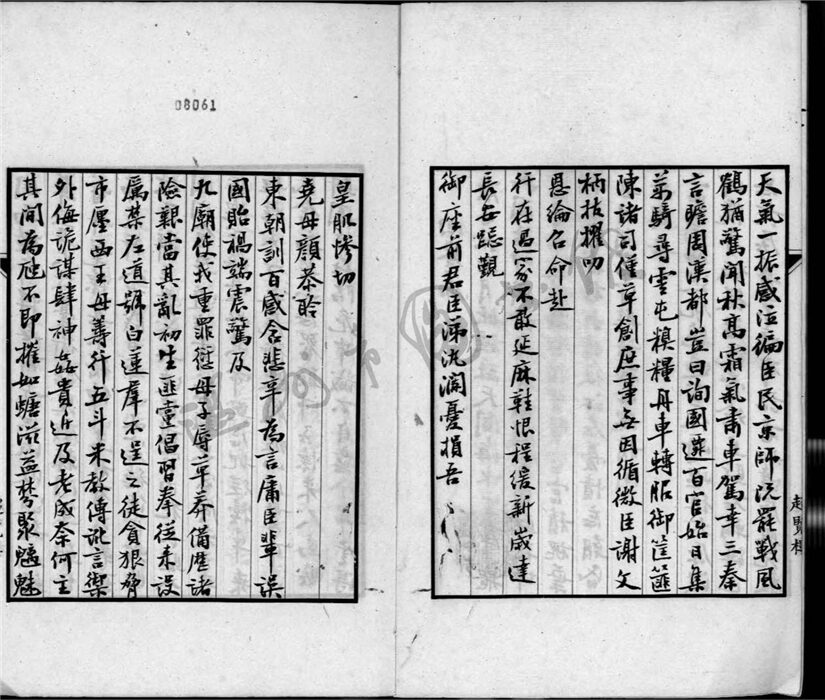 天氣一振感泣徧臣民京師既罷戰風
鶴猶驚聞秋高霜氣肅車駕幸三秦
言瞻周漢都豈曰詢國遷百官始日集
萬騎尋雲屯糗糧丹車轉服御筐篚
陳諸司僅草創庶事無因循微臣謝文
柄拔擢叨
恩綸召命赴
行在過家不敢延麻鞋恨程緩新歲達
長安跽觀
御座前君臣涕汍瀾憂損吾
皇肌慘切
堯母顏恭聆
東朝訓百感含悲辛為言庸臣輩誤
國貽禍端震驚及
九廟使我重罪愆母子辱草莽備歷諸
險艱當其亂初生匪黨倡習拳從來設
厲禁左道號白蓮羣不逞之徒貪狠脅
市廛西王母籌行五斗米教傳訛言禦
外侮詭謀肆神姦貴近及老成奈何主
其間為虺不即摧如螗滋益棼聚魑魅
趙賢標
08061